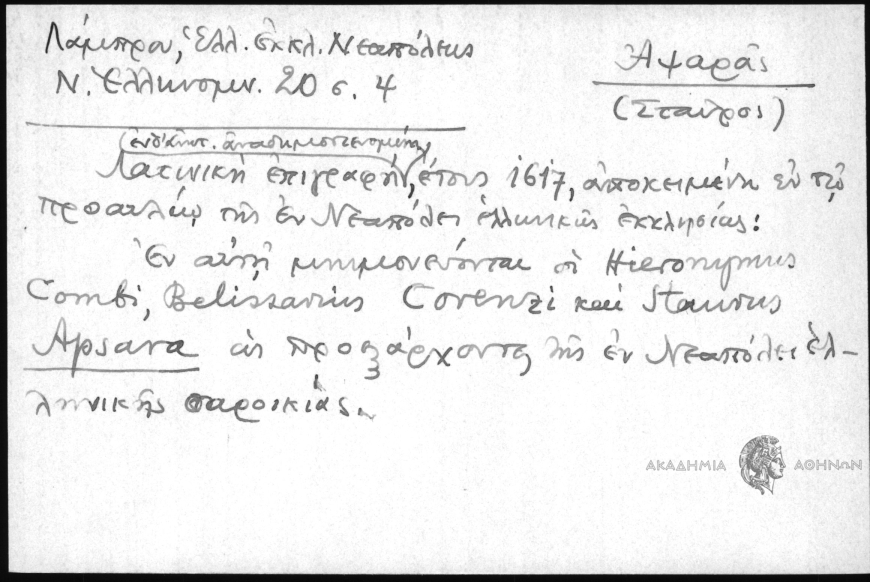 Λάμπρου, Ἑλλ. ἐκκλ. Νεαπόλεως
Ν. Ἑλληνομν. 20 σ. 4
Ἀψαρᾶς
(Σταῦρος)
(ἐνθ' ἀνωτ. ἀναδημοσιευομένη)
Λατινικὴ ἐπιγραφή, ἔτους 1617, ἀποκειμένη ἐν τῷ
προαυλίῳ τῆς ἐν Νεαπόλει ἑλληνικῆς ἐκκλησίας:
Ἐν αὐτῇ μνημονεύονται οἱ Hieronymus
Combi, Belissarius Corenzi καὶ Staurus
Apsara ὡς προεξάρχοντες τῆς ἐν Νεαπόλει ἑλ-
ληνικῆς παροικίας.
ΑΚΑΔΗΜΙΑ ΑΘΗΝΩΝ